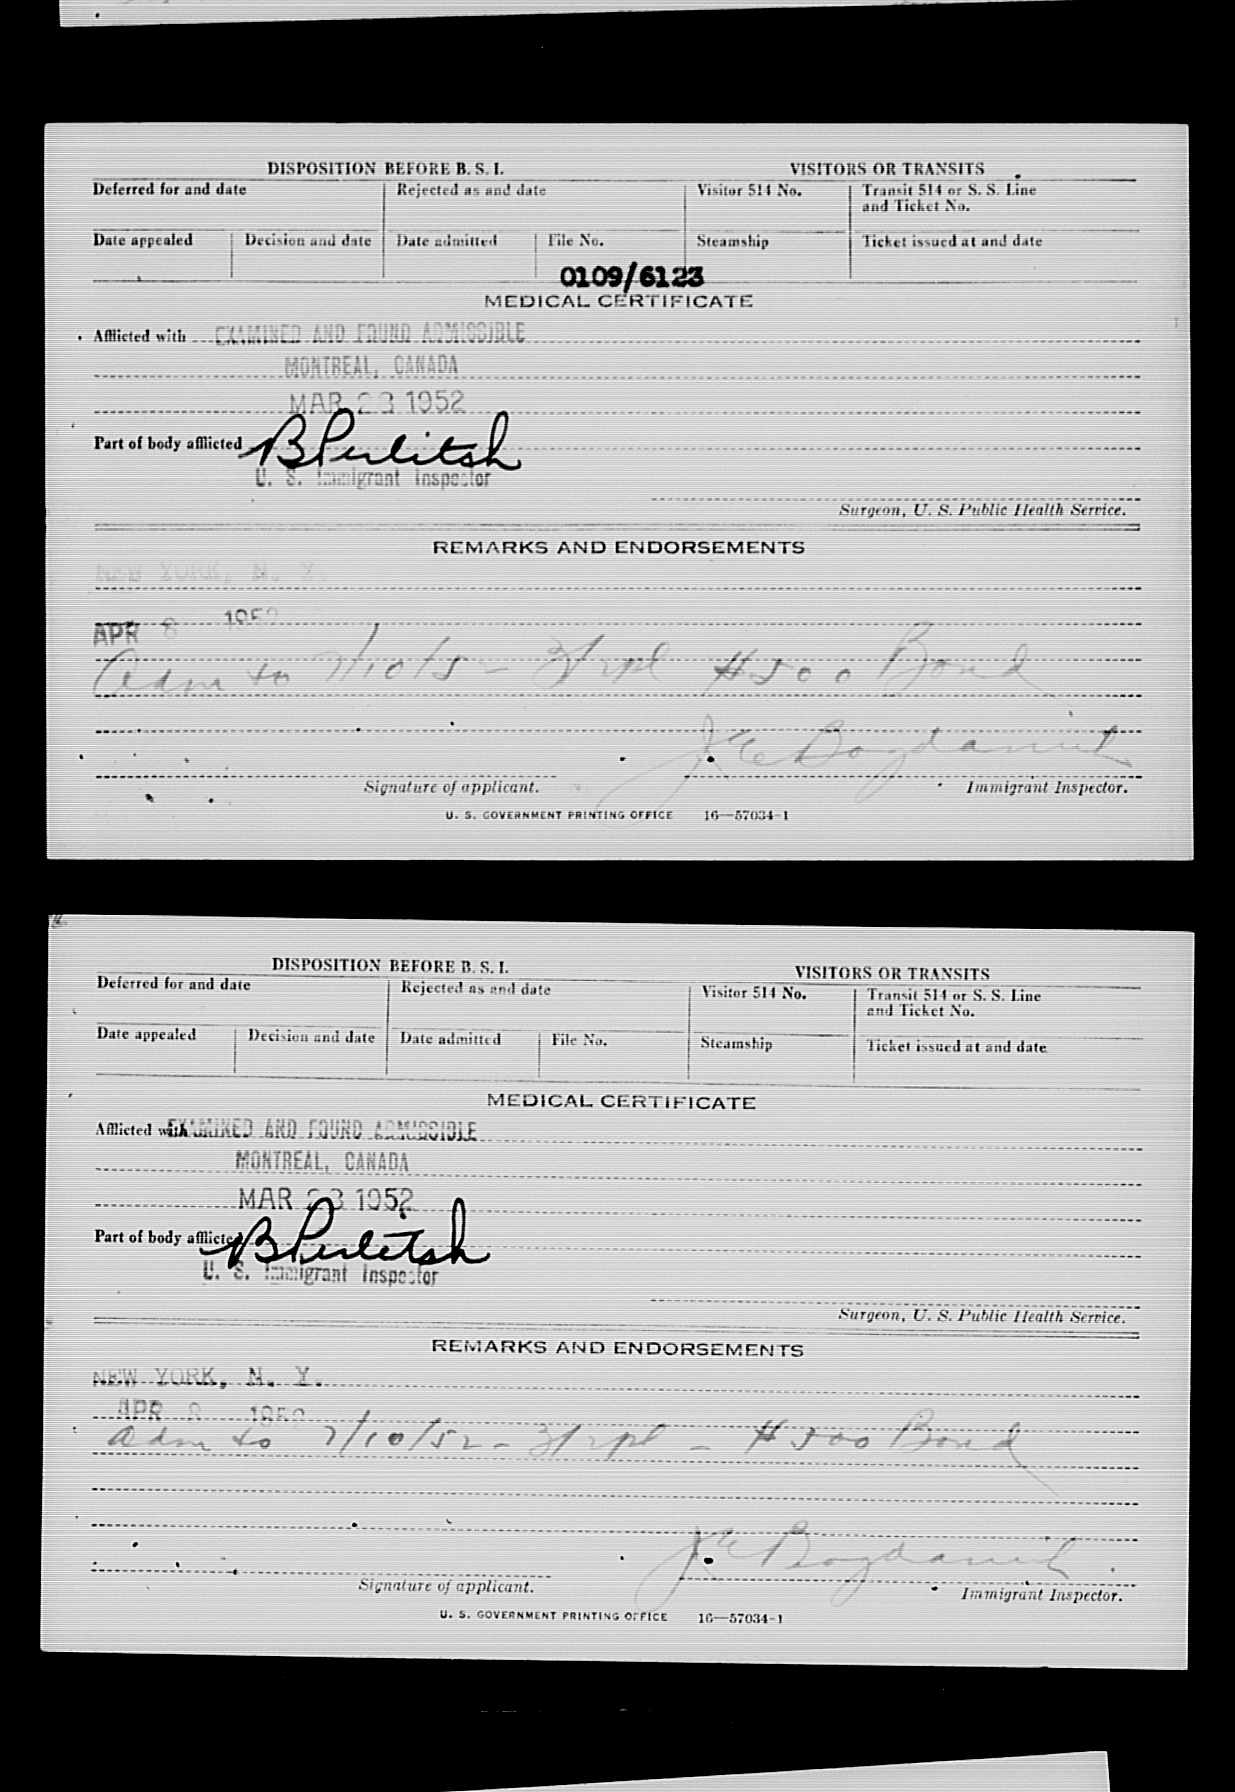 DISPOSITION BEFORE B. S. I. VISITORS OR TRANSITS
Deferred for and date Rejected as and date Visitor 514 No. Transit 514 or S. S. Line and Ticket No.
Date appealed Decision and date Date admitted File No. Steamship Ticket issued at and date
0109/6123
MEDICAL CERTIFICATE
Afflicted with EXAMINED AND FOUND ADMISSIBLE
MONTREAL, CANADA
MAR 23 1952
Part of body afflicted B Perlitsh
U. S. Immigrant Inspector
Surgeon, U. S. Public Health Service.
REMARKS AND ENDORSEMENTS
NEW YORK, N. Y.
APR 8 1952
adm to 7/10/52 - $500 Bond
Signature of applicant. Immigrant Inspector.
U. S. GOVERNMENT PRINTING OFFICE 16—57034-1
DISPOSITION BEFORE B. S. I. VISITORS OR TRANSITS
Deferred for and date Rejected as and date Visitor 514 No. Transit 514 or S. S. Line and Ticket No.
Date appealed Decision and date Date admitted File No. Steamship Ticket issued at and date
MEDICAL CERTIFICATE
Afflicted with EXAMINED AND FOUND ADMISSIBLE
MONTREAL, CANADA
MAR 23 1952
Part of body afflicted B Perlitsh
U. S. Immigrant Inspector
Surgeon, U. S. Public Health Service.
REMARKS AND ENDORSEMENTS
NEW YORK, N. Y.
APR 8 1952
adm to 7/10/52 - - $500 Bond
Signature of applicant. Immigrant Inspector.
U. S. GOVERNMENT PRINTING OFFICE 16—57034-1